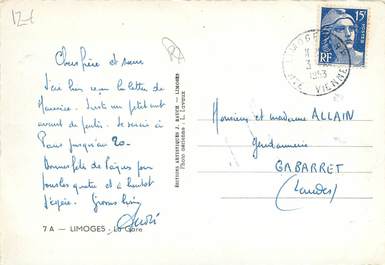 12€
Chers frère et sœur
J'ai bien reçu la lettre de
Maurice. Juste un petit mot
avant de partir. Je serais à
Paris jusqu'au 20-
Bonnes fêtes de Pâques pour
tous les quatre et à bientôt
j'espère. Grosses bises
André
7 A — LIMOGES - La Gare
ÉDITIONS ARTISTIQUES J. BAUER - LIMOGES
LIMOGES
1953
VIENNE
15F
POSTES
RF
Monsieur et madame ALLAIN
Gendarmerie
GABARRET
(Landes)